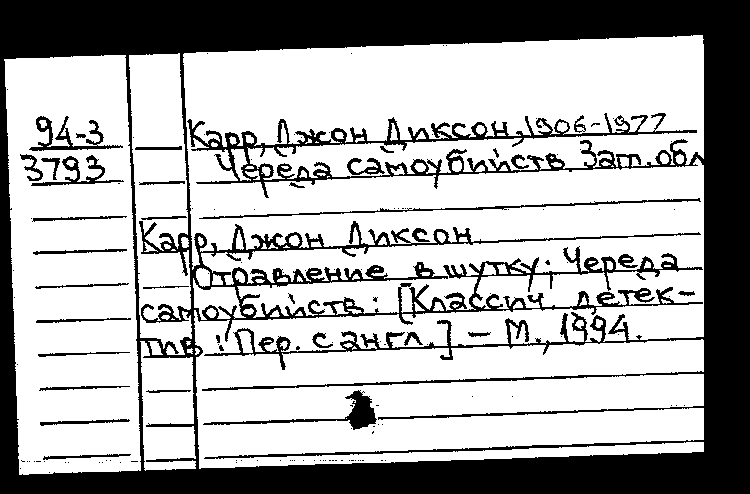 94-3 Карр, Джон Диксон, 1906-1977
3793 Череда самоубийств. Заг. обл
Карр, Джон Диксон.
Отравление в шутку; Череда
самоубийств: [Классич. детек-
тив: Пер. с англ.] - М., 1994.